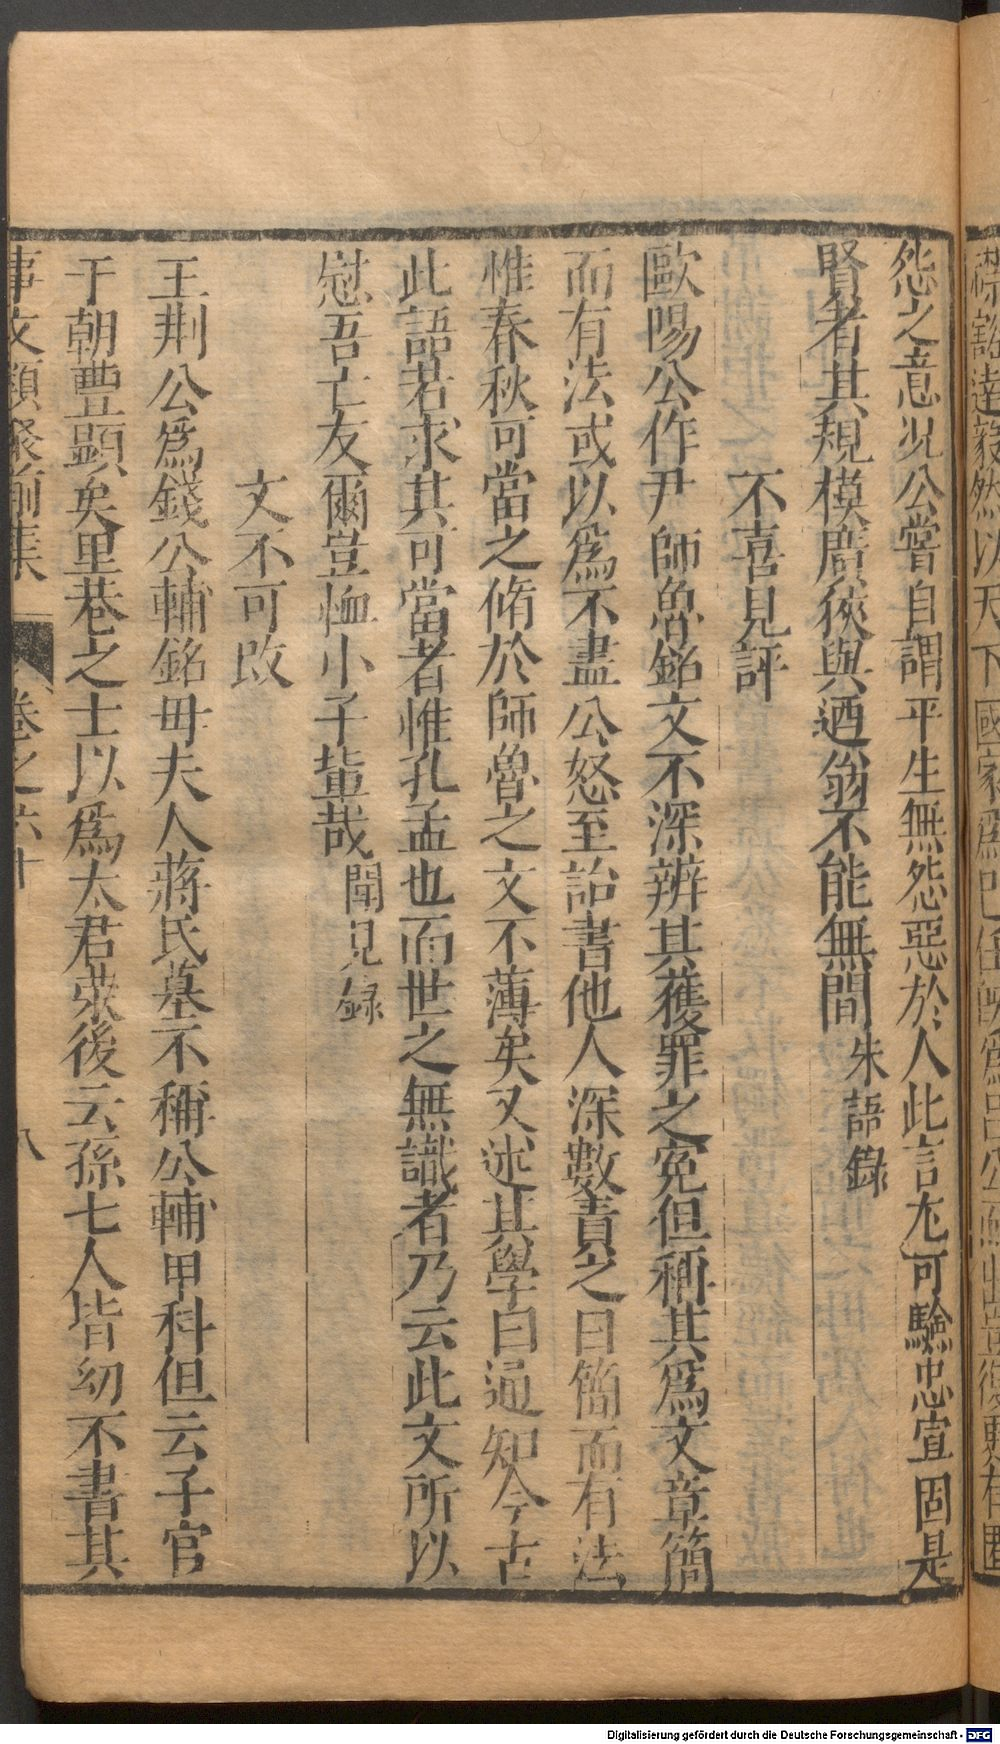 怨之意况公嘗自謂平生無怨惡於人此言尤可驗忠宣固是
賢者其規模廣狹與迺翁不能無間朱語錄
不喜見評
歐陽公作尹師魯銘文不深辨其獲罪之寃但稱其爲文章簡
而有法或以爲不盡公怒至詒書他人深數責之曰簡而有法
惟春秋可當之脩於師魯之文不薄矣又述其學曰通知今古
此語若求其可當者惟孔孟也而世之無識者乃云此文所以
慰吾亡友爾豈恤小子軰哉聞見録
文不可改
王荆公爲錢公輔銘毋夫人蔣氏墓不稱公輔甲科但云子官
于朝豊顯矣里巷之士以爲太君榮後云孫七人皆幼不書其
事文類聚前集 卷之六十 八
Digitalisierung gefördert durch die Deutsche Forschungsgemeinschaft - DFG